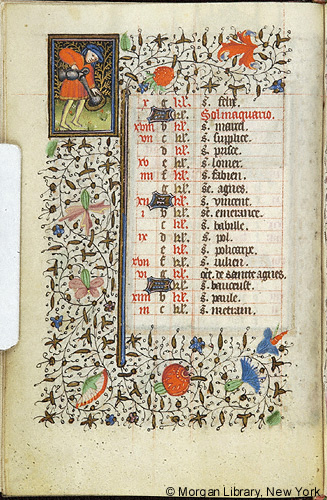 x c kl. s. felix.
Sol in aquario.
xviii d kl. s. marcel.
vii e kl. s. supplice.
d kl. s. prisce.
xv e kl. s. lomer.
iiii f kl. s. fabien.
g kl. se. agnes.
xii kl. s. vincent.
i b kl. se. emerance.
c kl. s. babille.
ix d kl. s. pol.
e kl. s. policarpe.
xvii f kl. s. iulien.
vi kl. oct. de sainte agnes.
kl. s.
xiiii b kl. s. paule.
iii c kl. s. metran.
© Morgan Library, New York